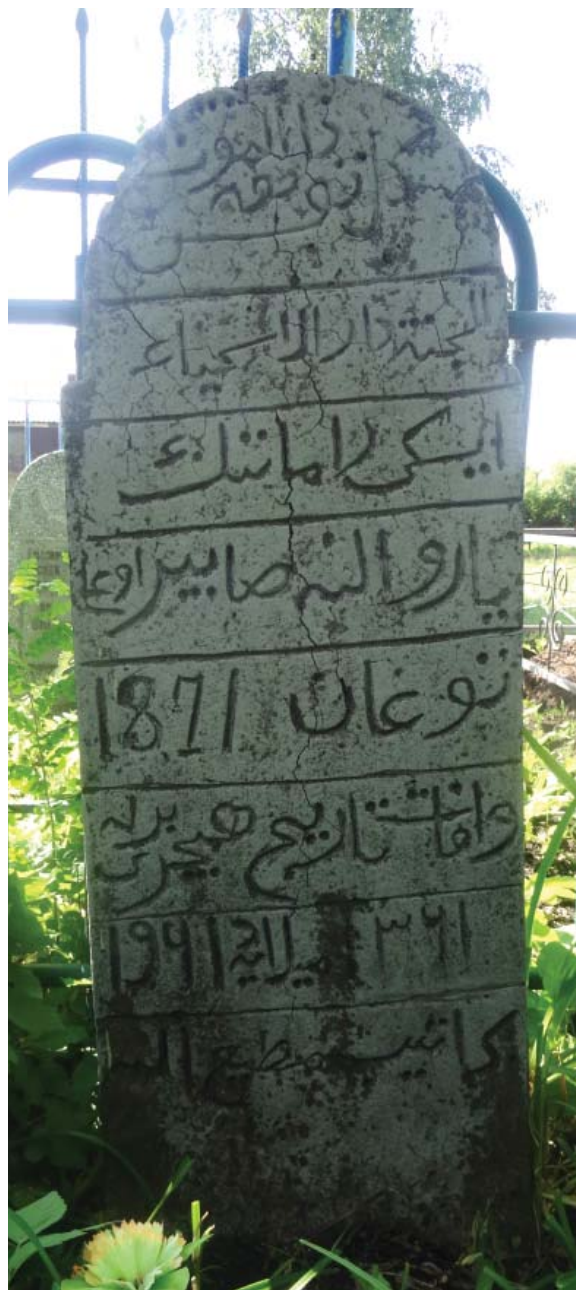 كل نفس ذائقة الموت
الجنة دار الاسخياء
ايسكى راماتنك
ياروالله صابير اوغلى
توغان 1871
وافات تاريخ هيجرت برله
٣٦١ ميلاديه
كاتيب مطيع الله